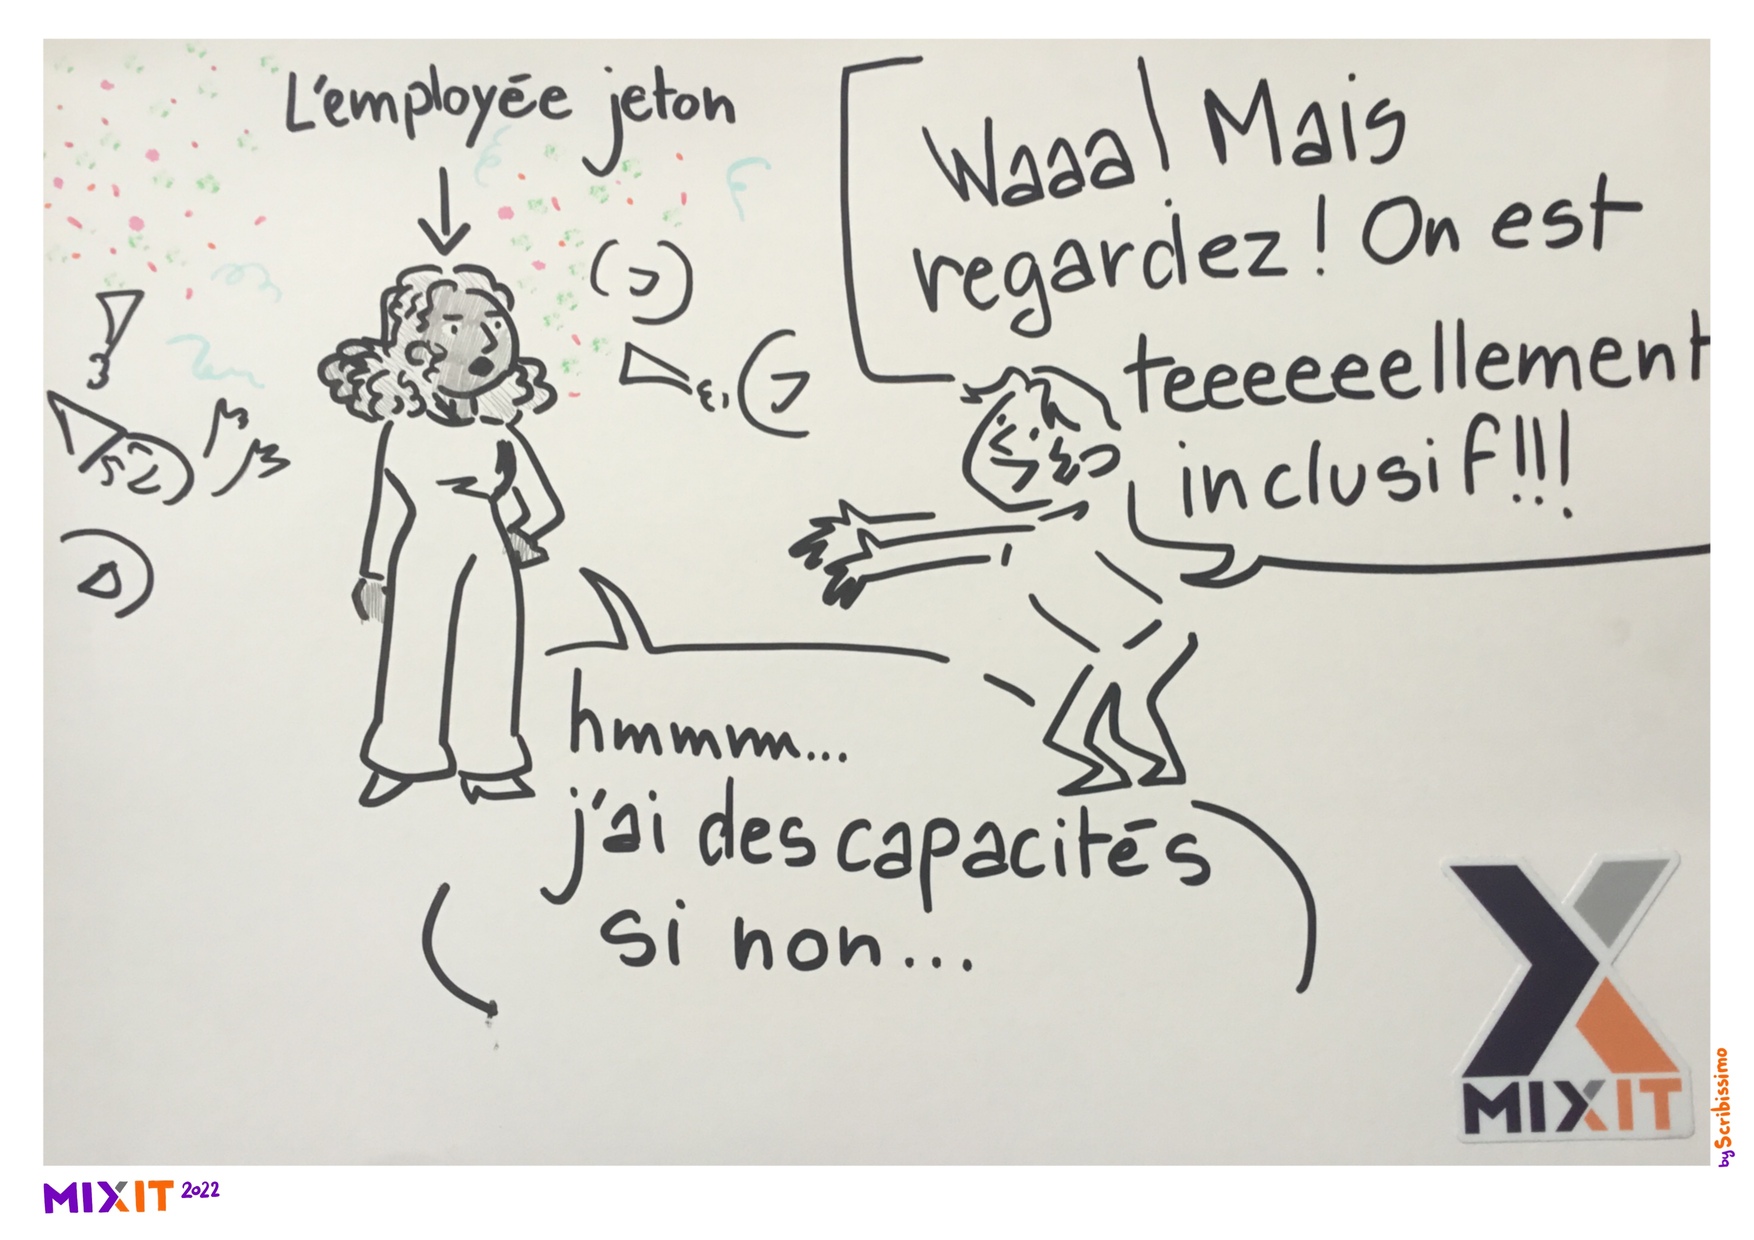 L'employée jeton
Waaa! Mais
regardez! On est
teeeeeellement
inclusif!!!
hmmmm...
j'ai des capacités
si non...
MIXIT
MIXIT 2022
by Scribissimo